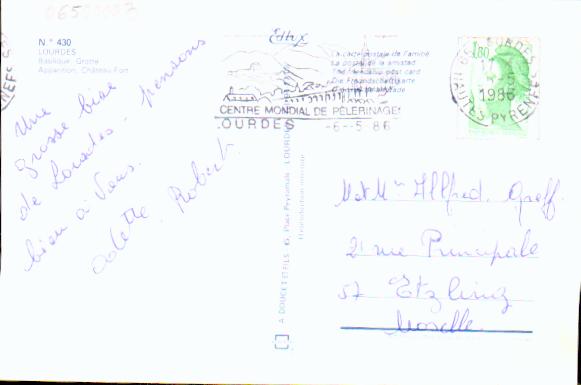 06501087
N° 430
LOURDES
Basilique, Grotte
Apparition, Château-Fort
Edlux
La carte postale de l'amitié
La postal de la amistad
The friendship post card
Die Freundschaftskarte
CENTRE MONDIAL DE PÈLERINAGES
LOURDES -6--5 86
1,80
LOURDES
1986
HAUTES PYRENEES
Une
grosse bise
de Lourdes. pensons
bien à Vous.
Odette. Robert.
A. DOUCET ET FILS 6, Place Peyramale LOURDES
M et Mme Alfred. Greff.
2 rue Principale
57 Etzling
Moselle.